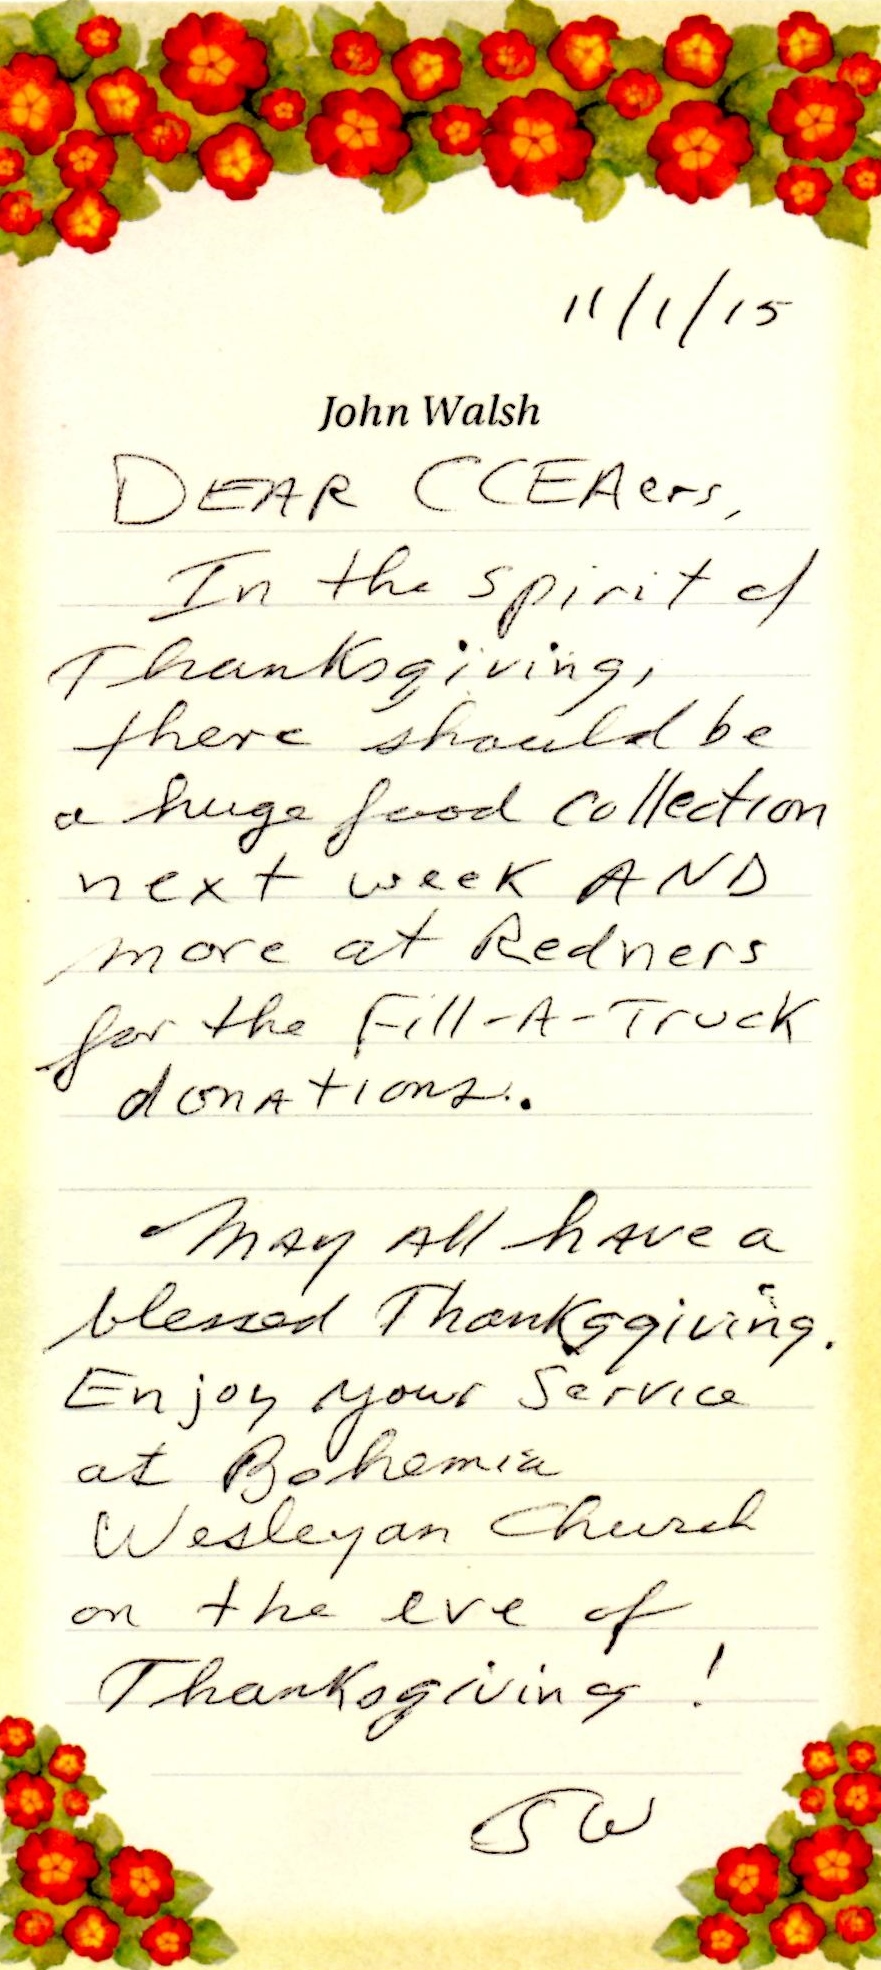 11/1/15
John Walsh
DEAR CCEAers,
In the spirit of
Thanksgiving,
there should be
a huge food collection
next week AND
more at Redners
for the Fill-A-Truck
donations.
May All have a
blessed Thanksgiving.
Enjoy your Service
at Bohemia
Wesleyan Church
on the eve of
Thanksgiving!
JW